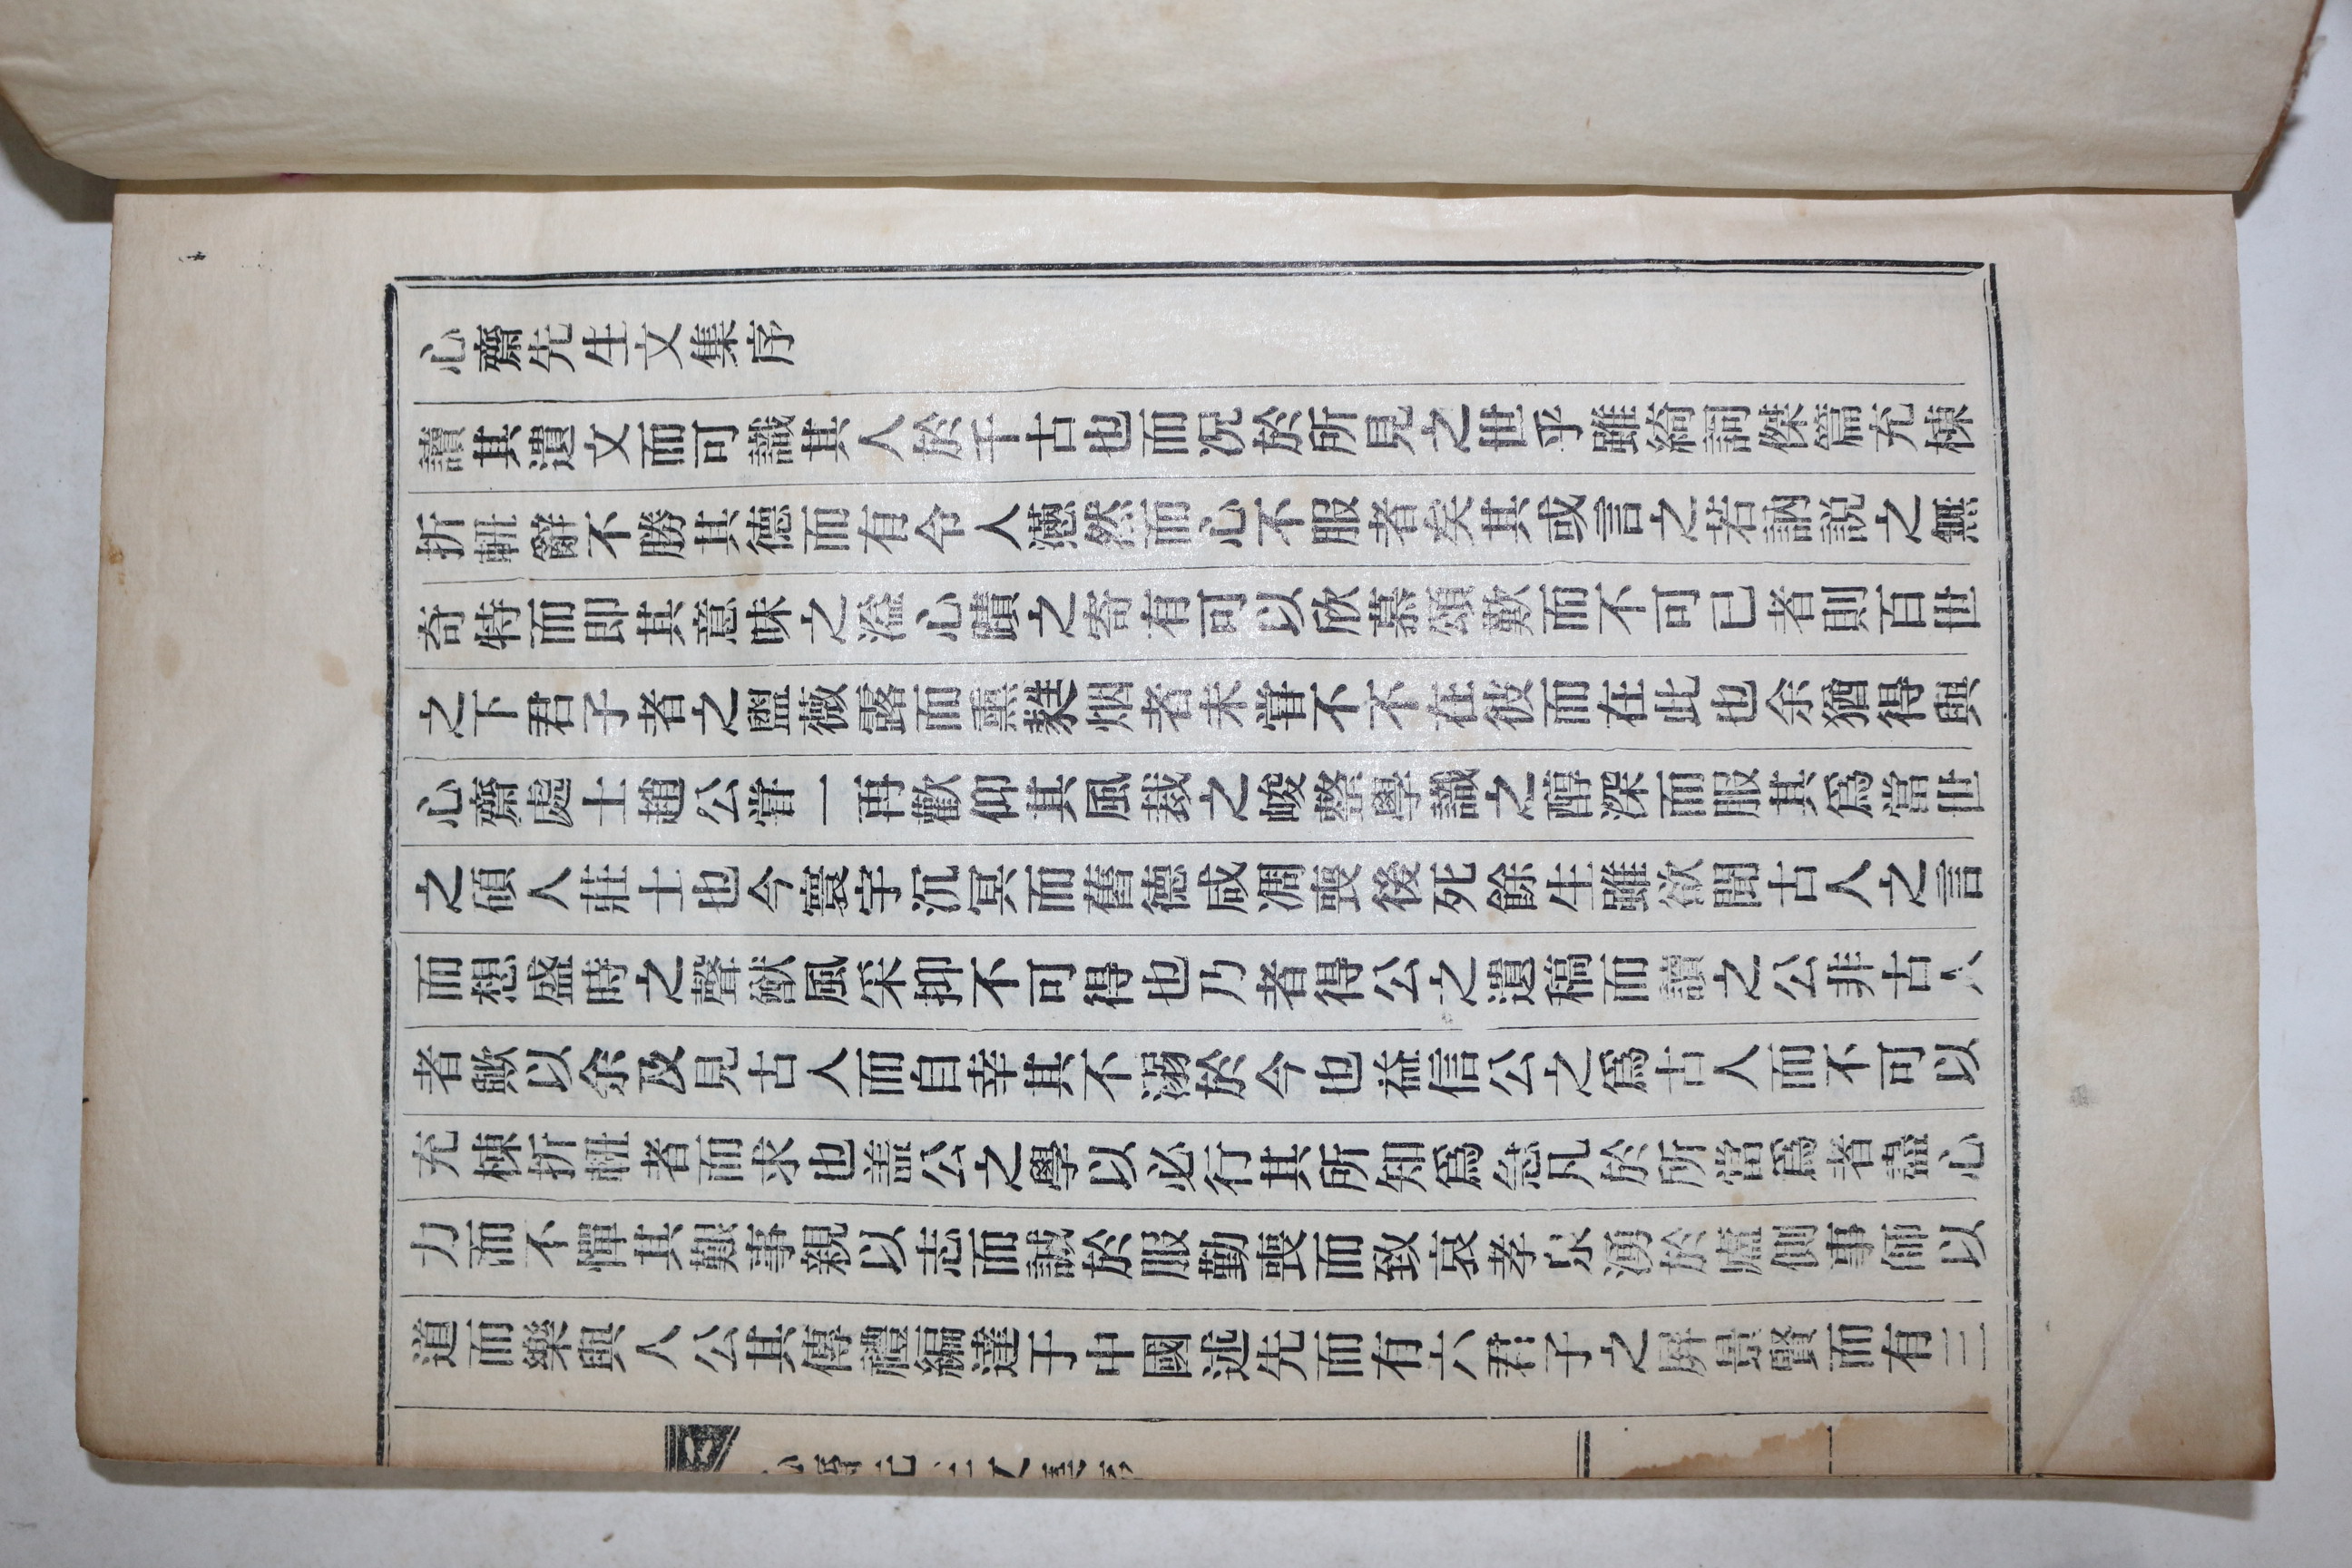 心齋先生文集序
讀其遺文而可識其人於千古也而况於所見之世乎雖綺詞傑篇充棟
折軠辭不勝其德而有令人懣然而心不服者矣其或言之若訥説之無
奇特而即其意味之溢心蹟之寄有可以欣慕頌歎而不可已者則百世
之下君子者之盥薇露而熏㸑烟者未甞不不在彼而在此也余猶得與
心齋處士趙公甞一再歡仰其風裁之峻整學識之醇深而服其爲當世
之碩人莊士也今寰宇沉冥而舊德咸凋喪後死餘生雖欲聞古人之言
而想盛時之聲猷風采抑不可得也乃者得公之遺稿而讀之公非古人
者歟以余及見古人而自幸其不溺於今也益信公之爲古人而不可以
充棟折軠者而求也盖公之學以必行其所知爲急凡於所當爲者盡心
力而不憚其艱事親以志而誠於服勤喪而致哀孝泉湧於廬側事師以
道而樂與人公其傳禮編達于中國述先而有六君子之屛景賢而有三
心齋先生文集序
一